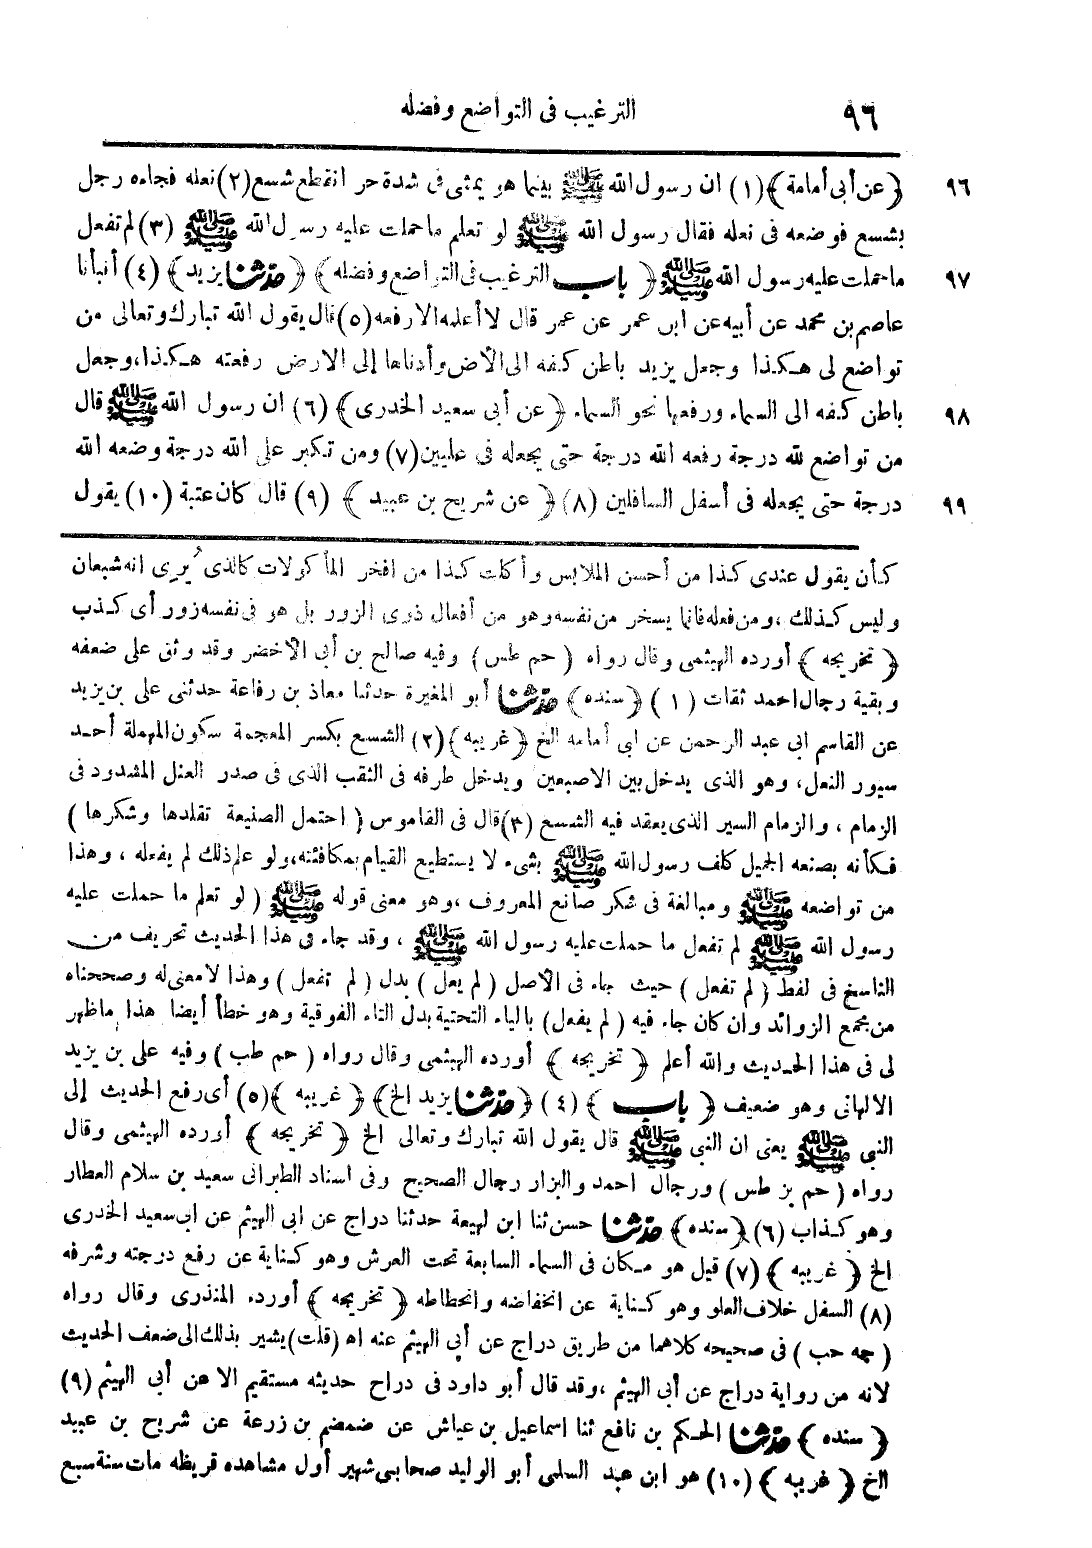 ٩٦ الترغيب فى التواضع وفضله
٩٦ ﴿عن أبى أمامة﴾ (١) ان رسول الله ﷺ بينما هو يمشى فى شدة حر انقطع شسع (٢) نعله فجاءه رجل
بشسع فوضعه فى نعله فقال رسول الله ﷺ لو تعلم ما حملت عليه رسول الله ﷺ (٣) لم تفعل
٩٧ ما حملت عليه رسول الله ﷺ ﴿باب الترغيب فى التواضع وفضله﴾ ﴿حدثنا يزيد﴾ (٤) أنبأنا
عاصم بن محمد عن أبيه عن ابن عمر عن عمر قال لا أعلمه الا رفعه (٥) قال يقول الله تبارك وتعالى من
تواضع لى هـكـذا وجعل يزيد باطن كـفه الى الأرض وأدناها إلى الارض رفعته هـكـذا، وجعل
٩٨ باطن كـفه الى السماء ورفعها نحو السماء ﴿عن أبى سعيد الخدرى﴾ (٦) ان رسول الله ﷺ قال
من تواضع لله درجة رفعه الله درجة حتى يجعله فى عليين (٧) ومن تـكبر على الله درجة وضعه الله
٩٩ درجة حتى يجعله فى أسفل السافلين (٨) ﴿عن شريح بن عبيد﴾ (٩) قال كان عتبة (١٠) يقول
كـأن يقول عندى كـذا من أحسن الملابس وأكلت كـذا من افخر المأكولات كالذى يُرى انه شبعان
وليس كـذلك، ومن فعله فانما يسخر من نفسه وهو من أفعال ذوى الزور بل هو فى نفسه زور أى كـذب
﴿تخريجه﴾ أورده الهيثمى وقال رواه (حم طس) وفيه صالح بن أبى الأخضر وقد وثق على ضعفه
وبقية رجال احمد ثقات (١) ﴿سنده﴾ حدثنا أبو المغيرة حدثنا معاذ بن رفاعة حدثنى على بن يزيد
عن القاسم ابى عبد الرحمن عن ابى أمامه الخ ﴿غريبه﴾ (٢) الشسع بكسر المعجمة سكون المهملة أحـد
سيور النعل، وهو الذى يدخل بين الاصبعين ويدخل طرفه فى الثقب الذى فى صدر العنل المشدود فى
الزمام، والزمام السير الذى يعقد فيه الشسع (٣) قال فى القاموس (احتمل الصنيعة تقلدها وشكرها)
فـكأنه بصنعه الجميل كلف رسول الله ﷺ بشىء لا يستطيع القيام بمكافئته، ولو علم ذلك لم يفعله، وهذا
من تواضعه ﷺ ومبالغة فى شكر صانع المعروف، وهو معنى قوله ﷺ (لو تعلم ما حملت عليه
رسول الله ﷺ لم تفعل ما حملت عليه رسول الله ﷺ، وقد جاء فى هذا الحديث تحريف من
الناسخ فى لفط (لم تفعل) حيث جاء فى الأصل (لم يعل) بدل (لم تفعل) وهذا لا معنى له وصححناه
من مجمع الزوائد وان كان جاء فيه (لم يفعل) بالياء التحتية بدل التاء الفوقية وهو خطأ أيضا هذا ما ظهر
لى فى هذا الحـديث والله أعلم ﴿تخريجه﴾ أورده الهيثمى وقال رواه (حم طب) وفيه على بن يزيد
الالهانى وهو ضعيف ﴿باب﴾ (٤) ﴿حدثنا يزيد الخ﴾ ﴿غريبه﴾ (٥) أى رفع الحديث إلى
النبى ﷺ يعنى ان النبى ﷺ قال يقول الله تبارك وتعالى الخ ﴿تخريجه﴾ أورده الهيثمى وقال
رواه (حم بز طس) ورجال احمد والبزار رجال الصحيح وفى اسناد الطبرانى سعيد بن سلام العطار
وهو كـذاب (٦) ﴿سنده﴾ حدثنا حسن ثنا ابن لهيعة حدثنا دراج عن ابى الهيثم عن ابى سعيد الخدرى
الخ ﴿غريبه﴾ (٧) قيل هو مـكان فى السماء السابعة تحت العرش وهو كـناية عن رفع درجته وشرفه
(٨) السفل خلاف العلو وهو كـناية عن انخفاضه وانحطاطه ﴿تخريجه﴾ أورده المنذرى وقال رواه
(جه حب) فى صحيحه كلاهما من طريق دراج عن أبى الهيثم عنه اه (قلت) يشير بذلك الى ضعف الحديث
لانه من رواية دراج عن أبى الهيثم، وقد قال أبو داود فى دراج حديثه مستقيم الا عن أبى الهيثم (٩)
﴿سنده﴾ حدثنا الحـكم بن نافع ثنا اسماعيل بن عياش عن ضمضم بن زرعة عن شريح بن عبيد
الخ ﴿غريبه﴾ (١٠) هو ابن عبد السلمى أبو الوليد صحابى شهير أول مشاهده قريظه مات سنة سبع